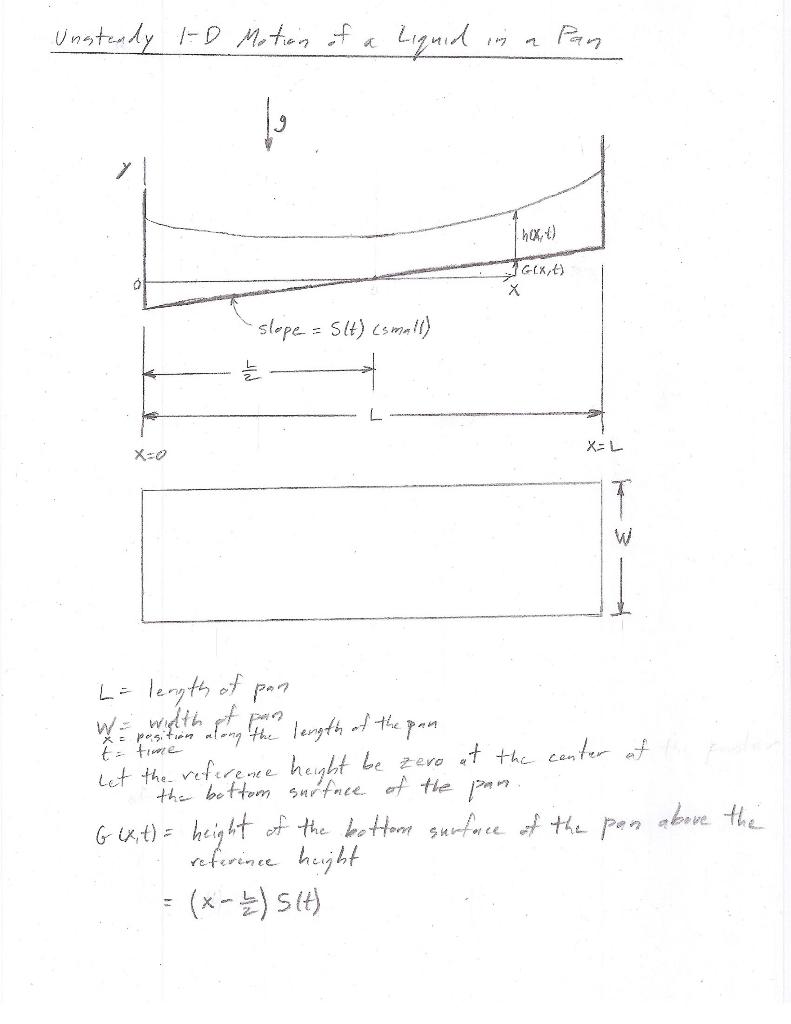 Unsteady 1-D Motion of a Liquid in a Pan
g
y
h(x,t)
G(x,t)
0
x
slope = S(t) (small)
L/2
L
x=0
x=L
W
L = length of pan
W = width of pan
x = position along the length of the pan
t = time
Let the reference height be zero at the center of
the bottom surface of the pan.
G(x,t) = height of the bottom surface of the pan above the
reference height
= (x - L/2) S(t)